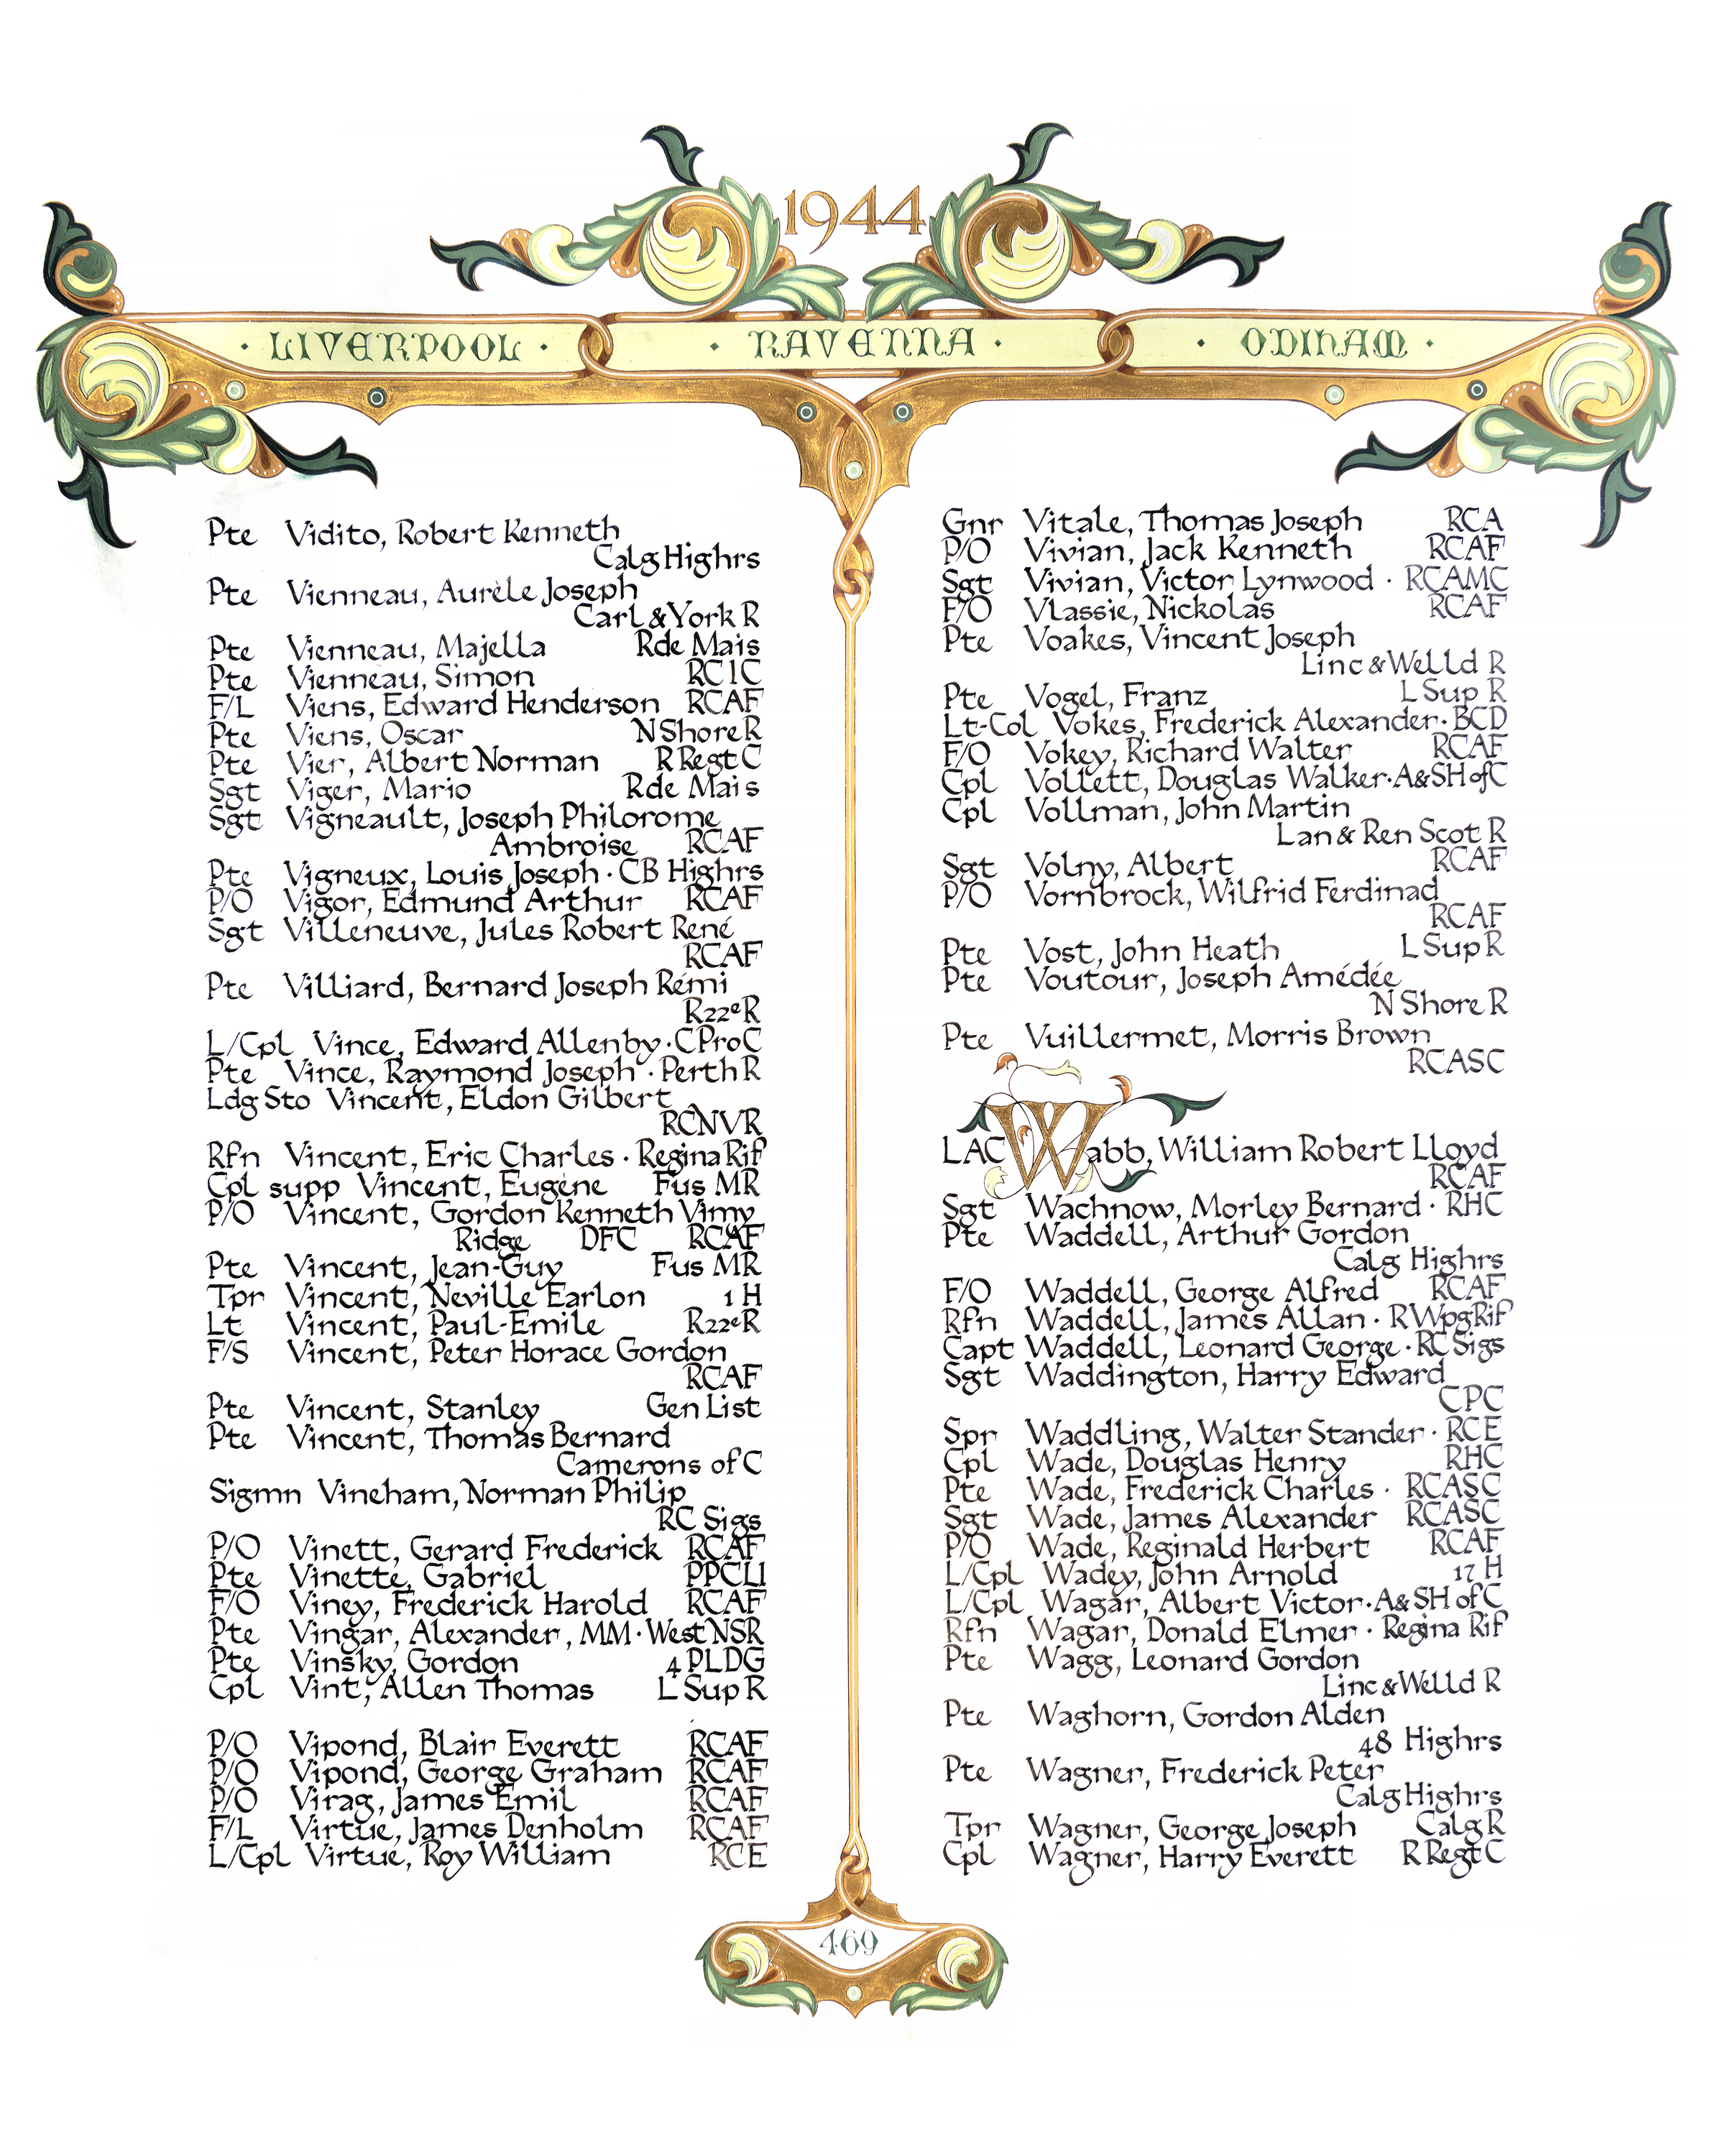 1944
· LIVERPOOL · · RAVENNA · · ODIHAM ·
Pte Vidito, Robert Kenneth
Calg Highrs
Pte Vienneau, Aurèle Joseph
Carl & York R
Pte Vienneau, Majella R de Mais
Pte Vienneau, Simon RCIC
F/L Viens, Edward Henderson RCAF
Pte Viens, Oscar N Shore R
Pte Vier, Albert Norman R Regt C
Sgt Viger, Mario R de Mais
Sgt Vigneault, Joseph Philorome
Ambroise RCAF
Pte Vigneux, Louis Joseph · CB Highrs
P/O Vigor, Edmund Arthur RCAF
Sgt Villeneuve, Jules Robert René
RCAF
Pte Villiard, Bernard Joseph Rémi
R22eR
L/Cpl Vince, Edward Allenby · C Pro C
Pte Vince, Raymond Joseph · Perth R
Ldg Sto Vincent, Eldon Gilbert
RCNVR
Rfn Vincent, Eric Charles · Regina Rif
Cpl supp Vincent, Eugène Fus MR
P/O Vincent, Gordon Kenneth Vimy
Ridge DFC RCAF
Pte Vincent, Jean-Guy Fus MR
Tpr Vincent, Neville Earlon 1 H
Lt Vincent, Paul-Emile R22eR
F/S Vincent, Peter Horace Gordon
RCAF
Pte Vincent, Stanley Gen List
Pte Vincent, Thomas Bernard
Camerons of C
Sigmn Vineham, Norman Philip
RC Sigs
P/O Vinett, Gerard Frederick RCAF
Pte Vinette, Gabriel PPCLI
F/O Viney, Frederick Harold RCAF
Pte Vingar, Alexander, MM · West NSR
Pte Vinsky, Gordon 4 PLDG
Cpl Vint, Allen Thomas L Sup R
P/O Vipond, Blair Everett RCAF
P/O Vipond, George Graham RCAF
P/O Virag, James Emil RCAF
F/L Virtue, James Denholm RCAF
L/Cpl Virtue, Roy William RCE
Gnr Vitale, Thomas Joseph RCA
P/O Vivian, Jack Kenneth RCAF
Sgt Vivian, Victor Lynwood · RCAMC
F/O Vlassie, Nickolas RCAF
Pte Voakes, Vincent Joseph
Linc & Welld R
Pte Vogel, Franz L Sup R
Lt-Col Vokes, Frederick Alexander · BCD
F/O Vokey, Richard Walter RCAF
Cpl Vollett, Douglas Walker · A & SH of C
Cpl Vollman, John Martin
Lan & Ren Scot R
Sgt Volny, Albert RCAF
P/O Vornbrock, Wilfrid Ferdinad
RCAF
Pte Vost, John Heath L Sup R
Pte Voutour, Joseph Amédée
N Shore R
Pte Vuillermet, Morris Brown
RCASC
LAC Wabb, William Robert Lloyd
RCAF
Sgt Wachnow, Morley Bernard · RHC
Pte Waddell, Arthur Gordon
Calg Highrs
F/O Waddell, George Alfred RCAF
Rfn Waddell, James Allan · R Wpg Rif
Capt Waddell, Leonard George · RC Sigs
Sgt Waddington, Harry Edward
CPC
Spr Waddling, Walter Stander · RCE
Cpl Wade, Douglas Henry RHC
Pte Wade, Frederick Charles · RCASC
Sgt Wade, James Alexander RCASC
P/O Wade, Reginald Herbert RCAF
L/Cpl Wadey, John Arnold 17 H
L/Cpl Wagar, Albert Victor · A & SH of C
Rfn Wagar, Donald Elmer · Regina Rif
Pte Wagg, Leonard Gordon
Linc & Welld R
Pte Waghorn, Gordon Alden
48 Highrs
Pte Wagner, Frederick Peter
Calg Highrs
Tpr Wagner, George Joseph Calg R
Cpl Wagner, Harry Everett R Regt C
469